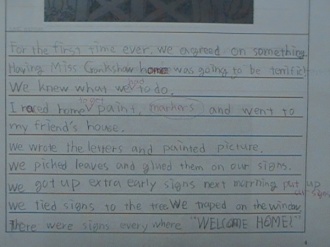 For the first time ever, we agreed on something.
Having Miss Gookshaw home was going to be terrific!
We knew what we to do.
I raced home paint, markers and went to
my friend's house.
we wrote the letters and painted picture.
we picked leaves and glued them on our signs.
we got up extra early signs next morning put up
we tied signs to the tree. We traped on the window
There were signs every where "WELCOME HOME!"